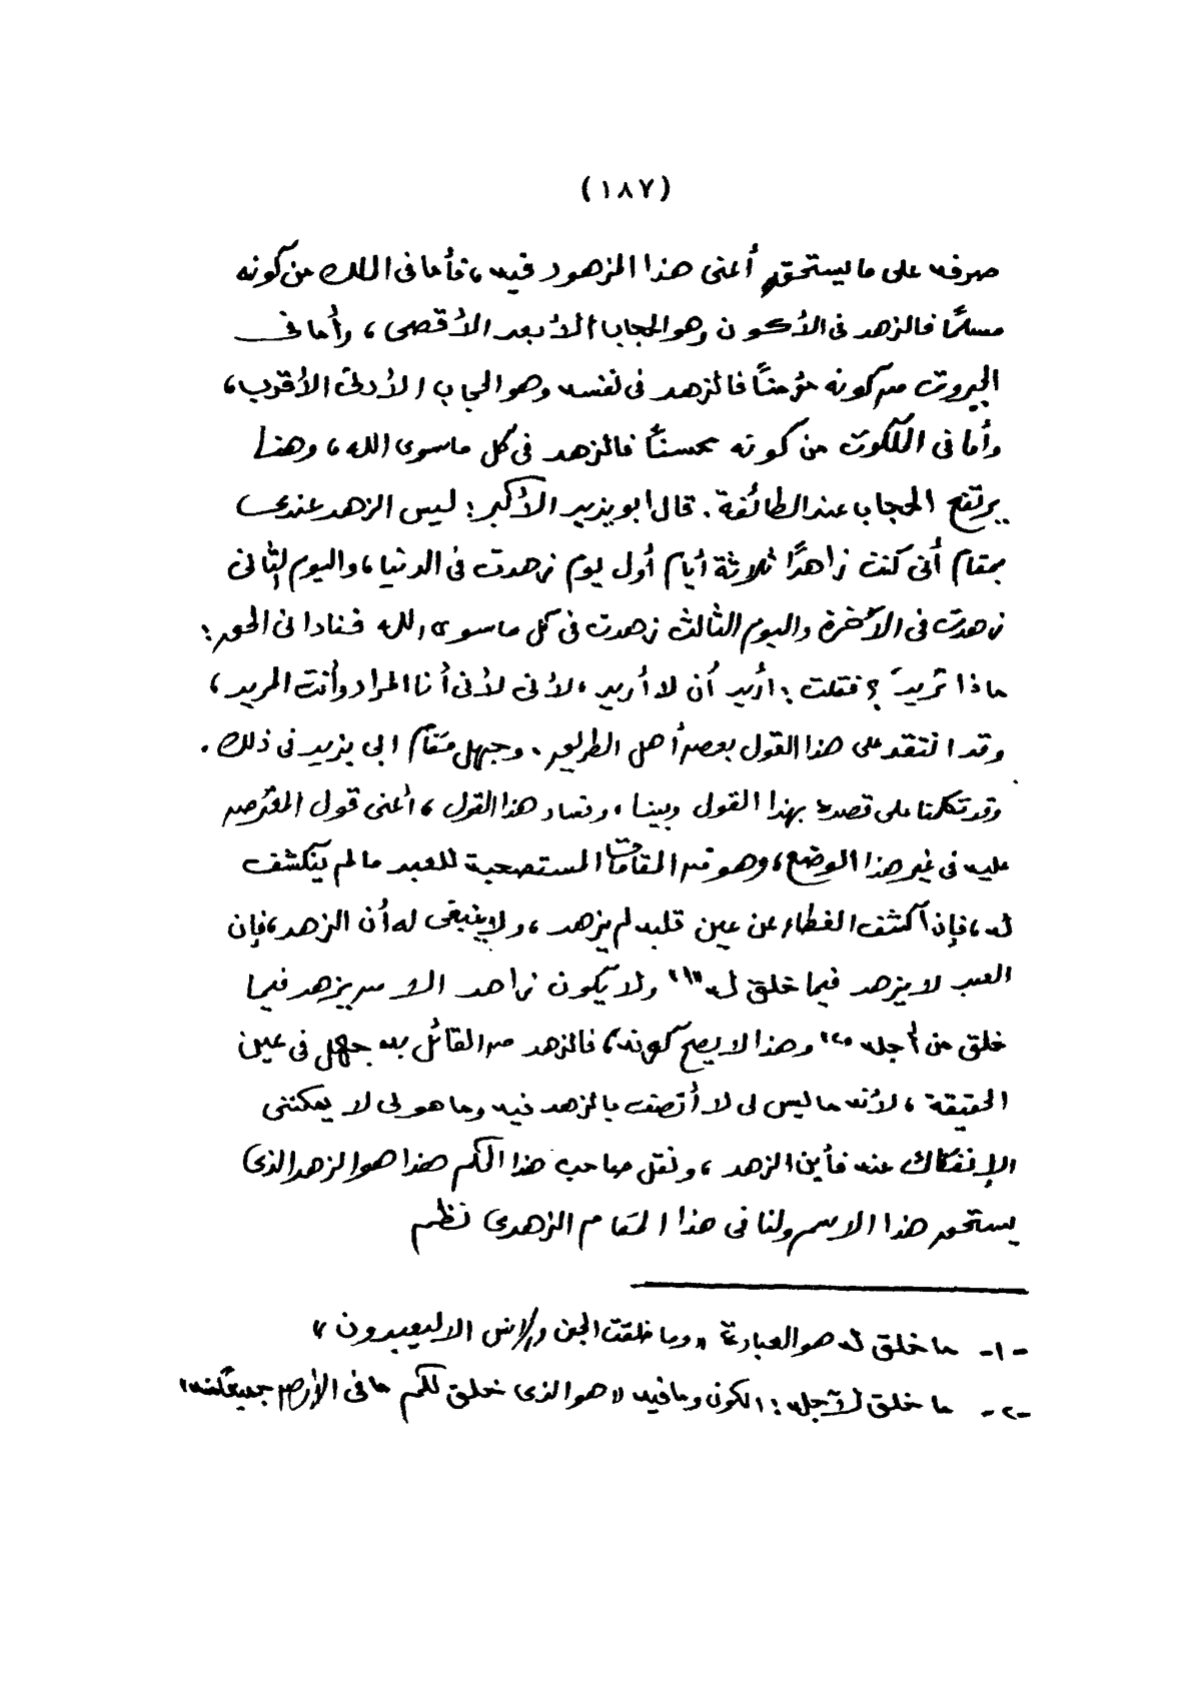 (١٨٧)
صرفه على ما يستحق، أعنى هذا المزهود فيه، فأما فى الملك من كونه
مسلمًا فالزهد فى الأكون وهو الحجاب الأبعد الأقصى، وأما فى
الجبروت من كونه مؤمنًا فالزهد فى نفسه وهو الحجاب الأدنى الأقرب،
وأما فى الملكوت من كونه محسنًا فالزهد فى كل ماسوى الله، وهنا
يرتفع الحجاب عند الطائفة. قال أبو يزيد الأكبر: ليس الزهد عندى
بمقام أنى كنت زاهدًا ثلاثة أيام أول يوم زهدت فى الدنيا، واليوم الثانى
زهدت فى الآخرة واليوم الثالث زهدت فى كل ماسوى الله فنادانى الحق:
ماذا تريد؟ فقلت: أريد أن لا أريد، لأنى لأنى أنا المراد وأنت المريد،
وقد انتقد على هذا القول بعض أهل الطريق. وجهل مقام ابى يزيد فى ذلك.
وقد تكلمنا على قصده بهذا القول وبينا، وفساد هذا القول، أعنى قول المعترض
عليه فى غير هذا الموضع، وهو من المقامات المستصحبة للعبد مالم ينكشف
له، فإذا كشف الغطاء عن عين قلبه لم يزهد، ولا ينبغى له أن الزهد، فإن
العبد لا يزهد فيما خلق له "١" ولا يكون زاهد الا من يزهد فيما
خلق من أجله "٢" وهذا لا يصح كونه، فالزهد من القائل به جهل فى عين
الحقيقة، لأنه ما ليس لى لا أتصف بالزهد فيه وما هو لى لا يمكننى
الإنفكاك عنه فأين الزهد، ونقل صاحب هذا الحكم هذا هو الزهد الذى
يستحق هذا الاسم ولنا فى هذا المقام الزهدى نظم
-١- ما خلق له هو العبادة "وما خلقت الجن والإنس الا ليعبدون"
-٢- ما خلق لأجله: الكون وما فيه "هو الذى خلق لكم ما فى الأرض جميعًا منه"